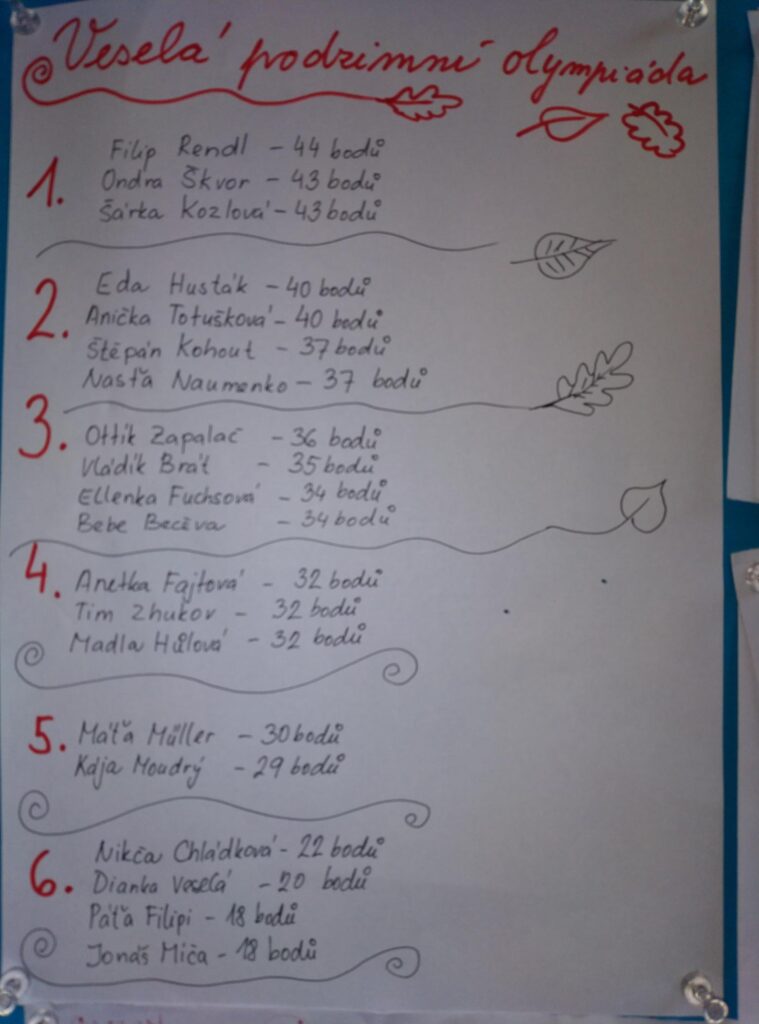 Veselá podzimní olympiáda
1.
Filip Rendl - 44 bodů
Ondra Škvor - 43 bodů
Šárka Kozlová - 43 bodů
2.
Eda Husták - 40 bodů
Anička Totušková - 40 bodů
Štěpán Kohout - 37 bodů
Nasťa Naumenko - 37 bodů
3.
Ottík Zapalač - 36 bodů
Vládík Brát - 35 bodů
Ellenka Fuchsová - 34 bodů
Bebe Bečěva - 34 bodů
4.
Anetka Fajtová - 32 bodů
Tim Zhukov - 32 bodů
Madla Hůlová - 32 bodů
5.
Máťa Műller - 30 bodů
Kája Moudrý - 29 bodů
6.
Nikča Chládková - 22 bodů
Dianka Veselá - 20 bodů
Páťa Filipi - 18 bodů
Jonáš Míča - 18 bodů